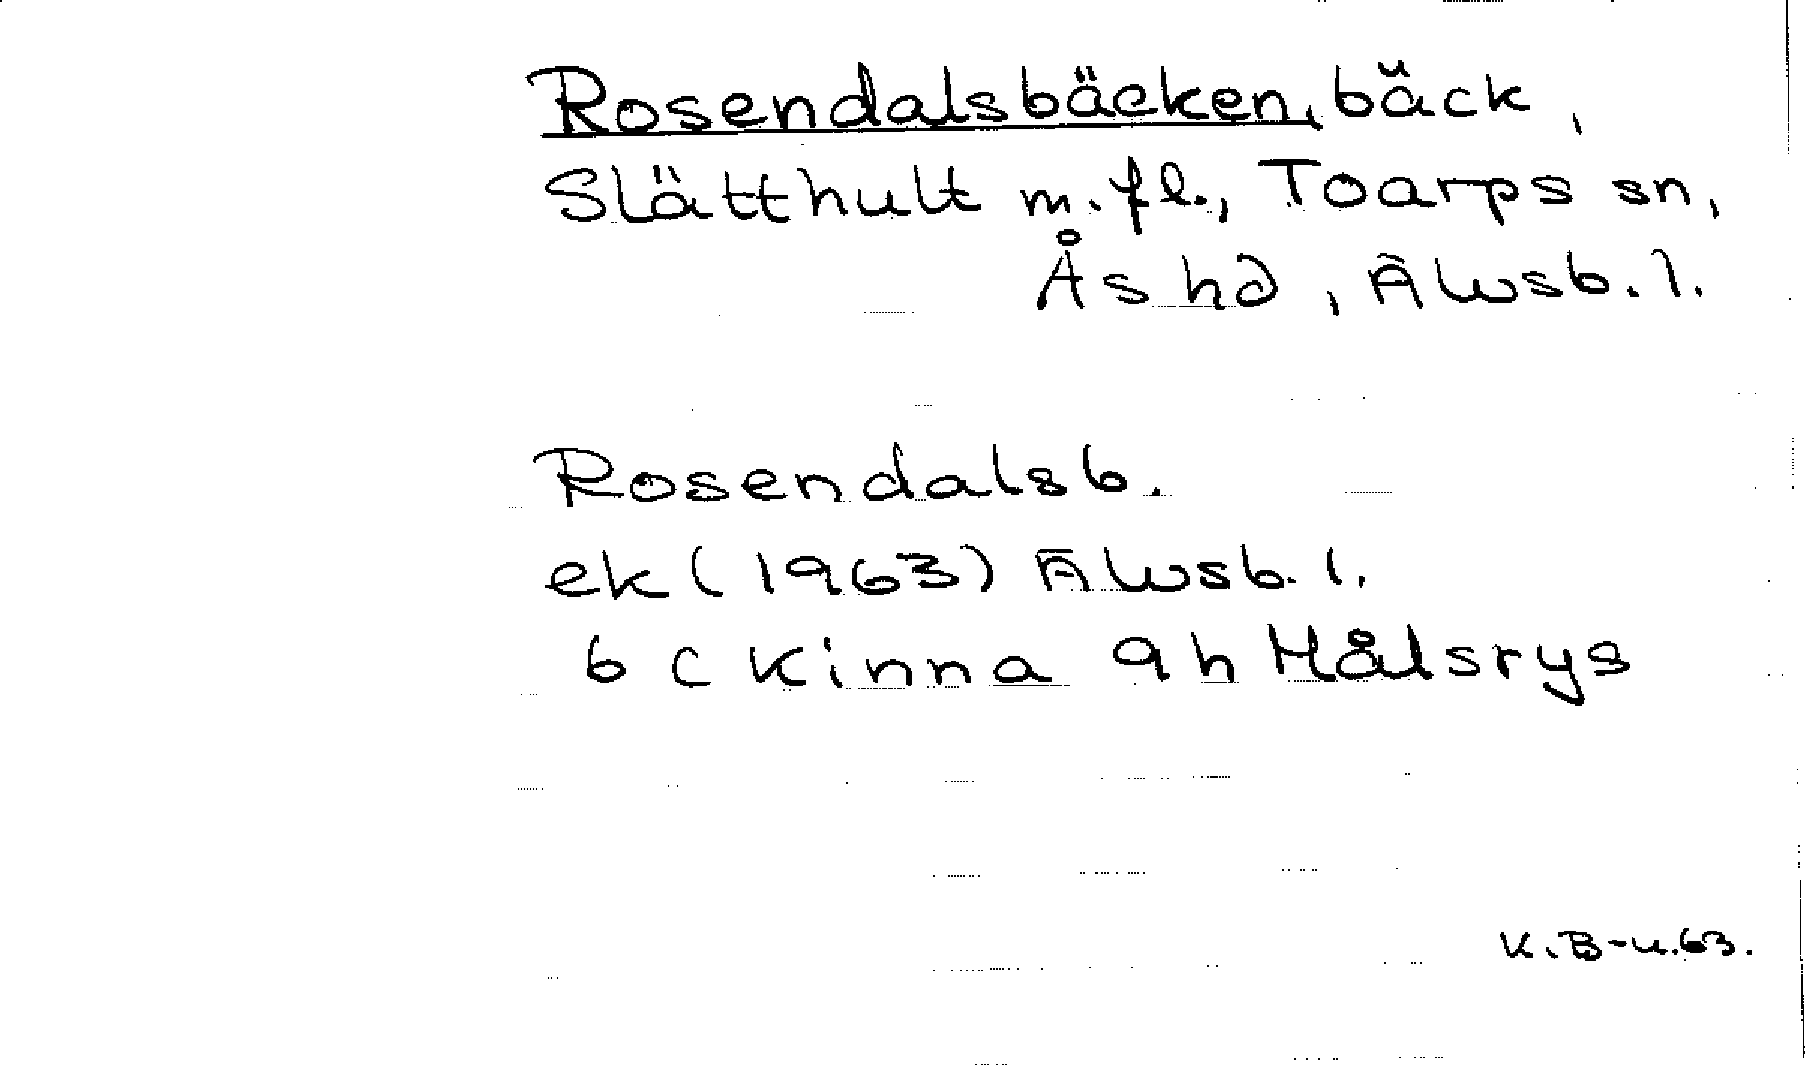 Rosendalsbäcken, bäck,
Slätthult m.fl., Toarps sn,
Ås hd, Älvsb. l.
Rosendalsb.
ek (1963) Älvsb. l.
6 c Kinna 9 h Målsryd
K. B-u. 63.